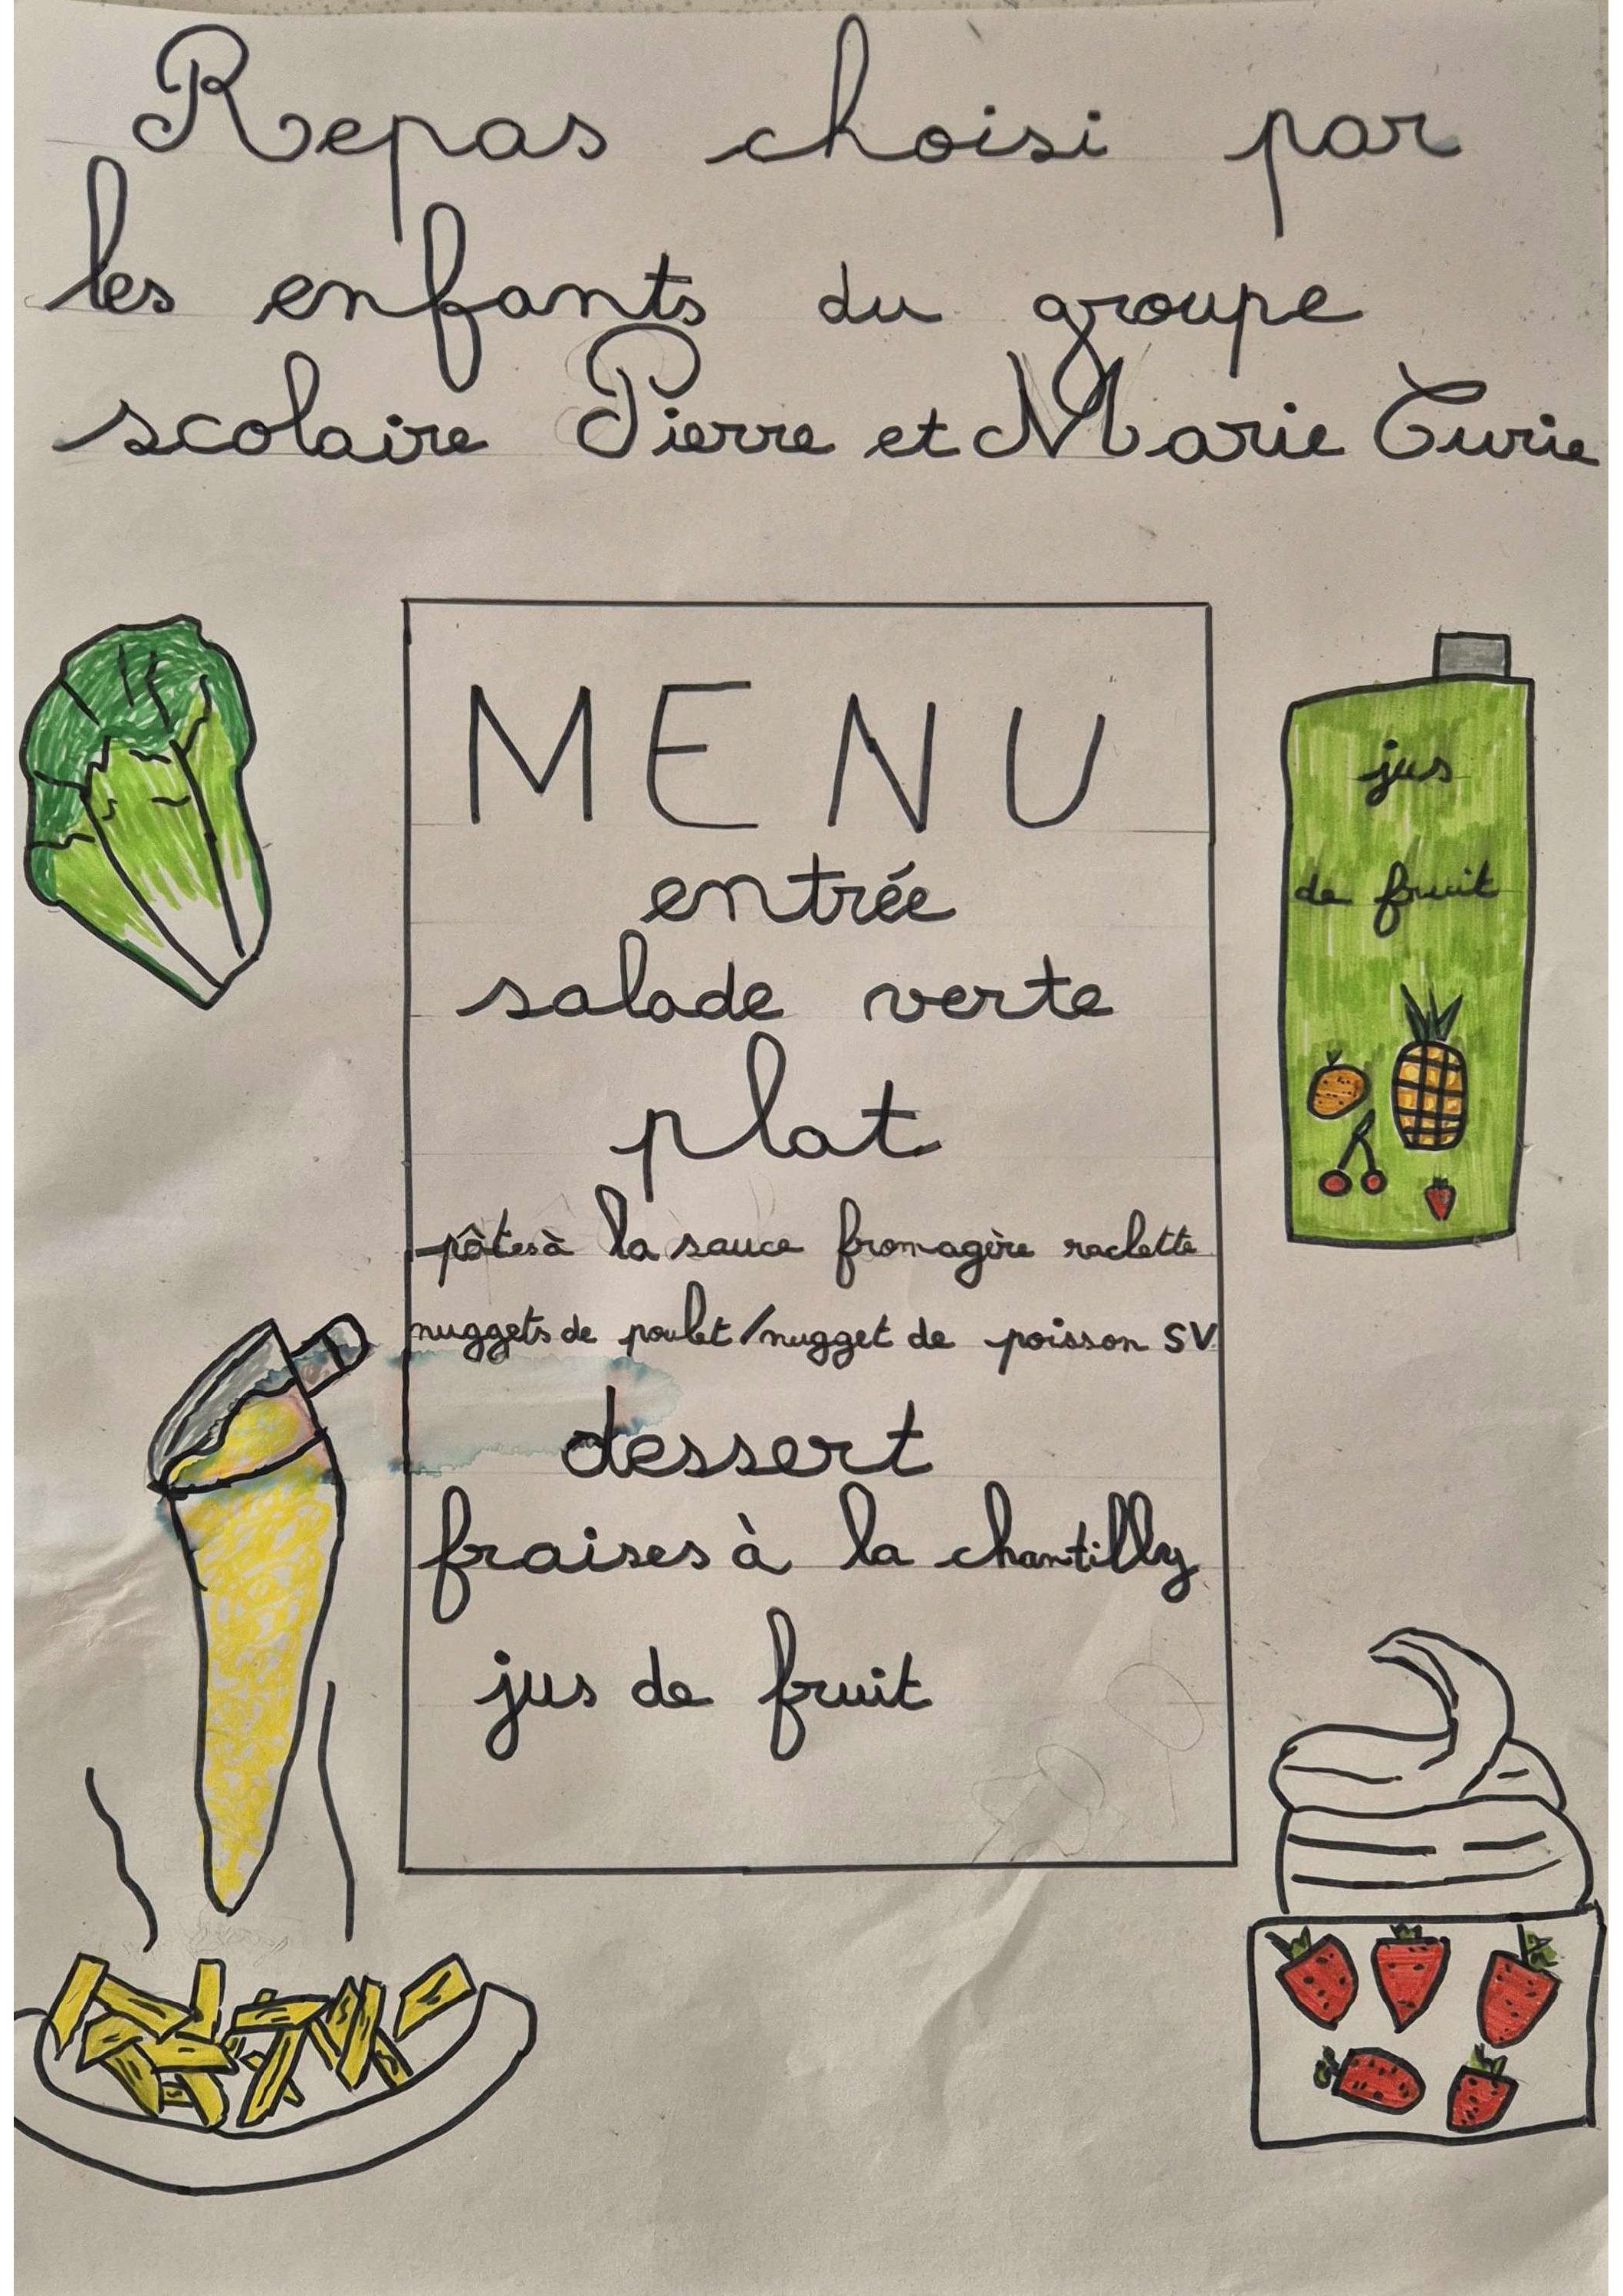 Repas choisi par
les enfants du groupe
scolaire Pierre et Marie Curie
MENU
entrée
salade verte
plat
pâtes à la sauce fromagère raclette
nuggets de poulet/nugget de poisson SV
dessert
fraises à la chantilly
jus de fruit
jus
de fruit